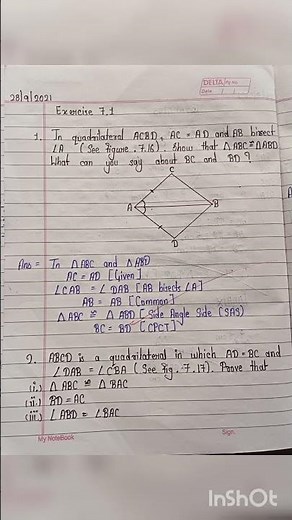 DELTA Pg No.
Date / /
28/9/2021
Exercise 7.1
1. In quadrilateral ACBD, AC = AD and AB bisect
∠A (See Figure. 7.16). Show that △ABC ≅ △ABD
What can you say about BC and BD ?
C
A
B
D
Ans = In △ABC and △ABD
AC = AD [Given]
∠CAB = ∠DAB [AB bisects ∠A]
AB = AB [Common]
△ABC ≅ △ABD [Side Angle Side (SAS)
BC = BD [CPCT]
2. ABCD is a quadrilateral in which AD = BC and
∠DAB = ∠CBA (See Fig. 7.17). Prove that
(i.) △ABC ≅ △BAC
(ii.) BD = AC
(iii.) ∠ABD = ∠BAC
My NoteBook
Sign.
InShOt